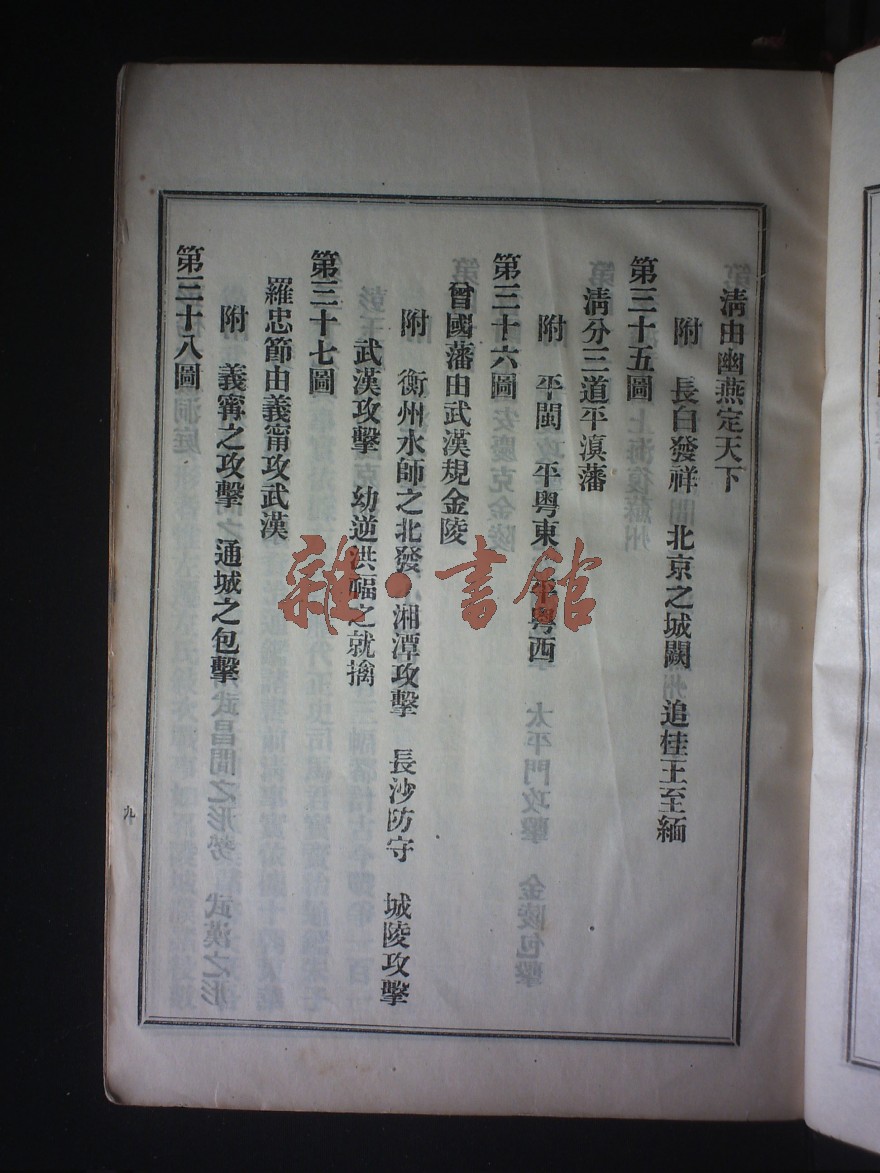 清由幽燕定天下
附　長白發祥　北京之城闕　追桂王至緬
第三十五圖
清分三道平滇藩
附　平閩　平粵東　平粵西
第三十六圖
曾國藩由武漢規金陵
附　衡州水師之北發　湘潭攻擊　長沙防守　城陵攻擊
武漢攻擊　幼逆洪福之就擒
第三十七圖
羅忠節由義甯攻武漢
附　義甯之攻擊　通城之包擊
第三十八圖
九
雜·書館